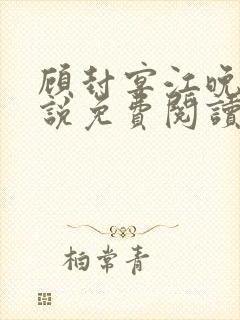 顾封宴江晚
说免费阅读
柏常青